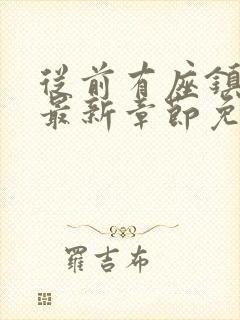 從前有座鎮
最新章節免
羅吉布